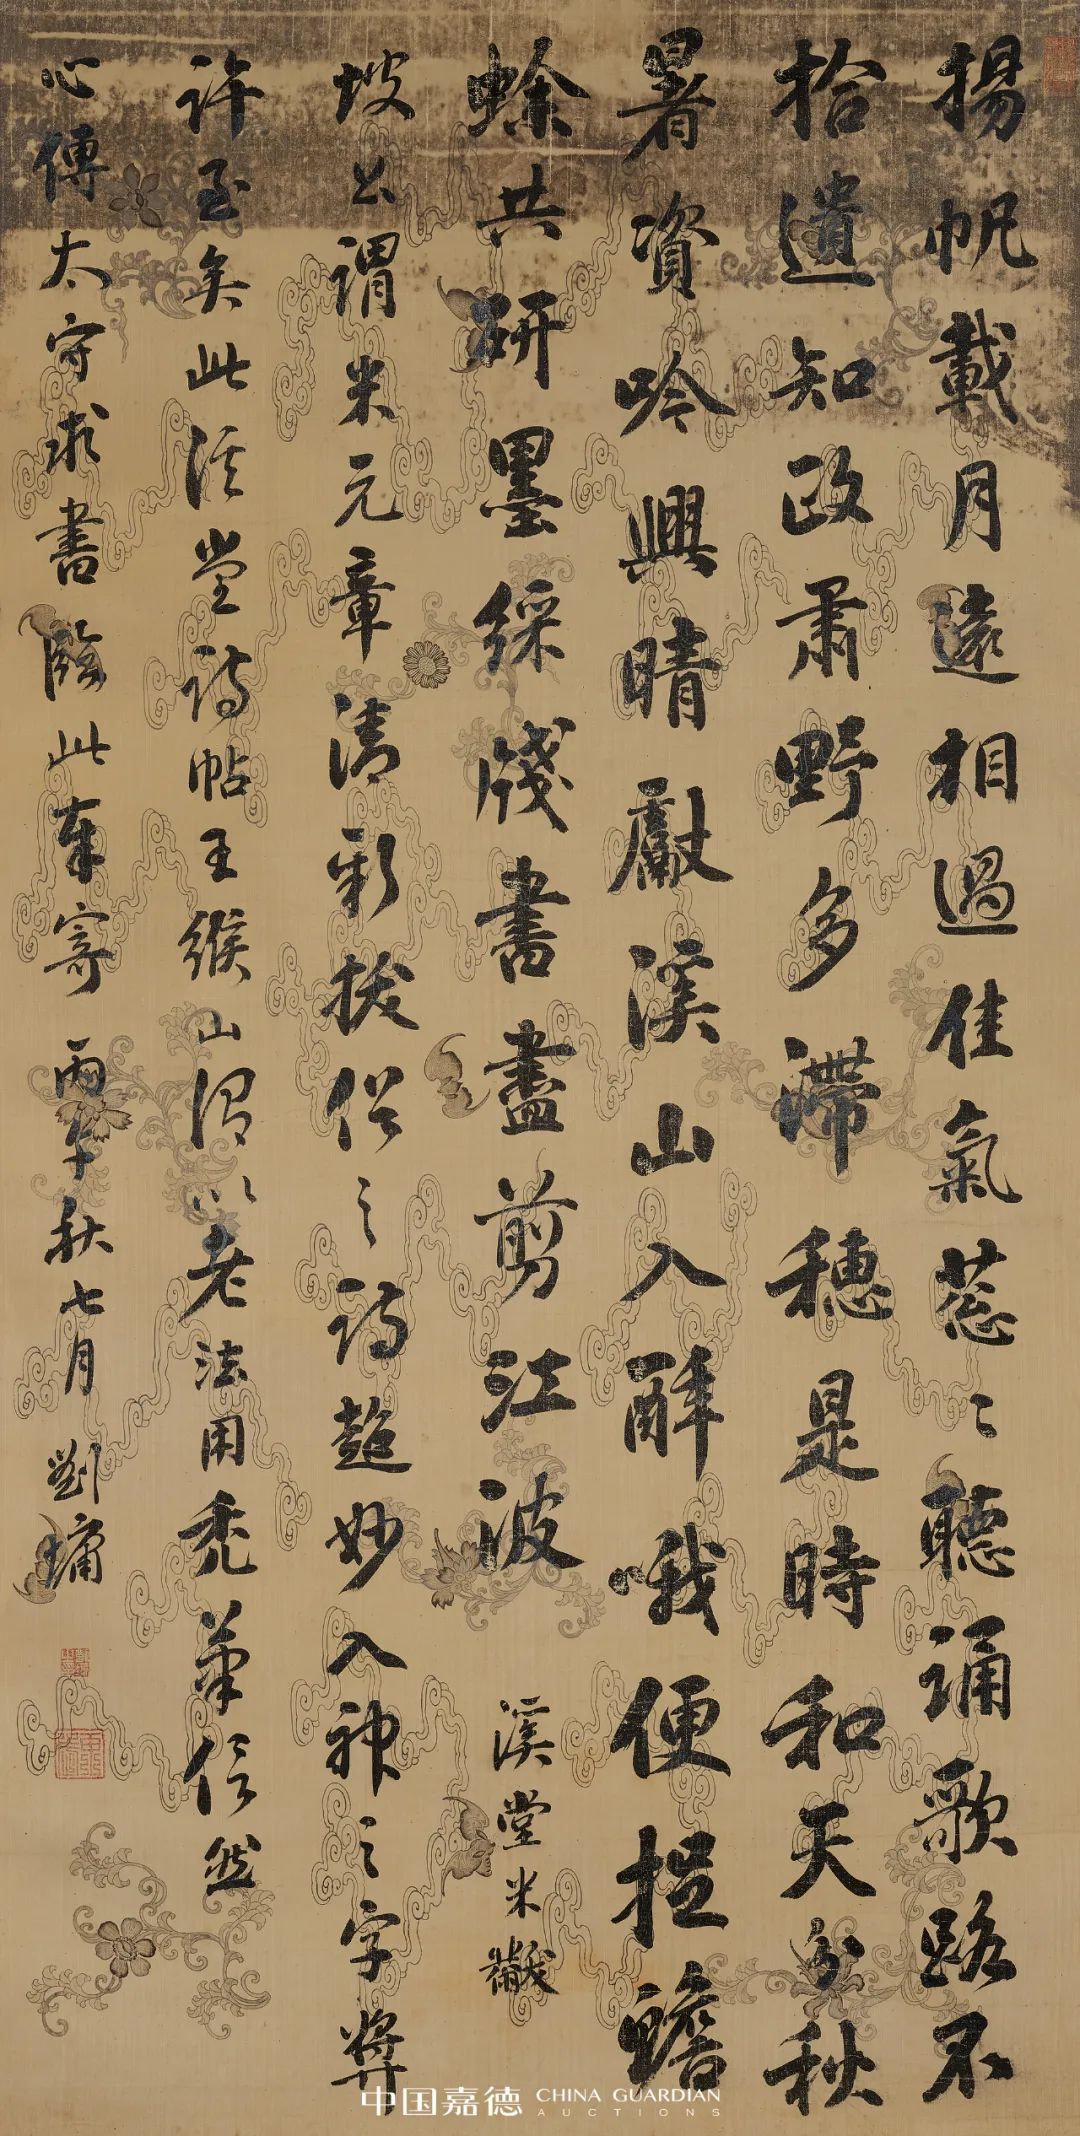 揚帆載月遠相過佳氣蔥〻聽誦歌路不
拾遺知政肅野多滯穗是時和天分秋
暑資吟興晴獻溪山入醉哦便捉蟾
蜍共研墨綵牋書盡剪江波
溪堂米黻
坡公謂米元章清新拔俗之詩超妙入神之字奬
許至矣此溪堂詩帖王緱山謂以老法用禿筆信然
心傳太守求書臨此奉寄 丙午秋七月 劉墉
中国嘉德 CHINA GUARDIAN AUCTIONS